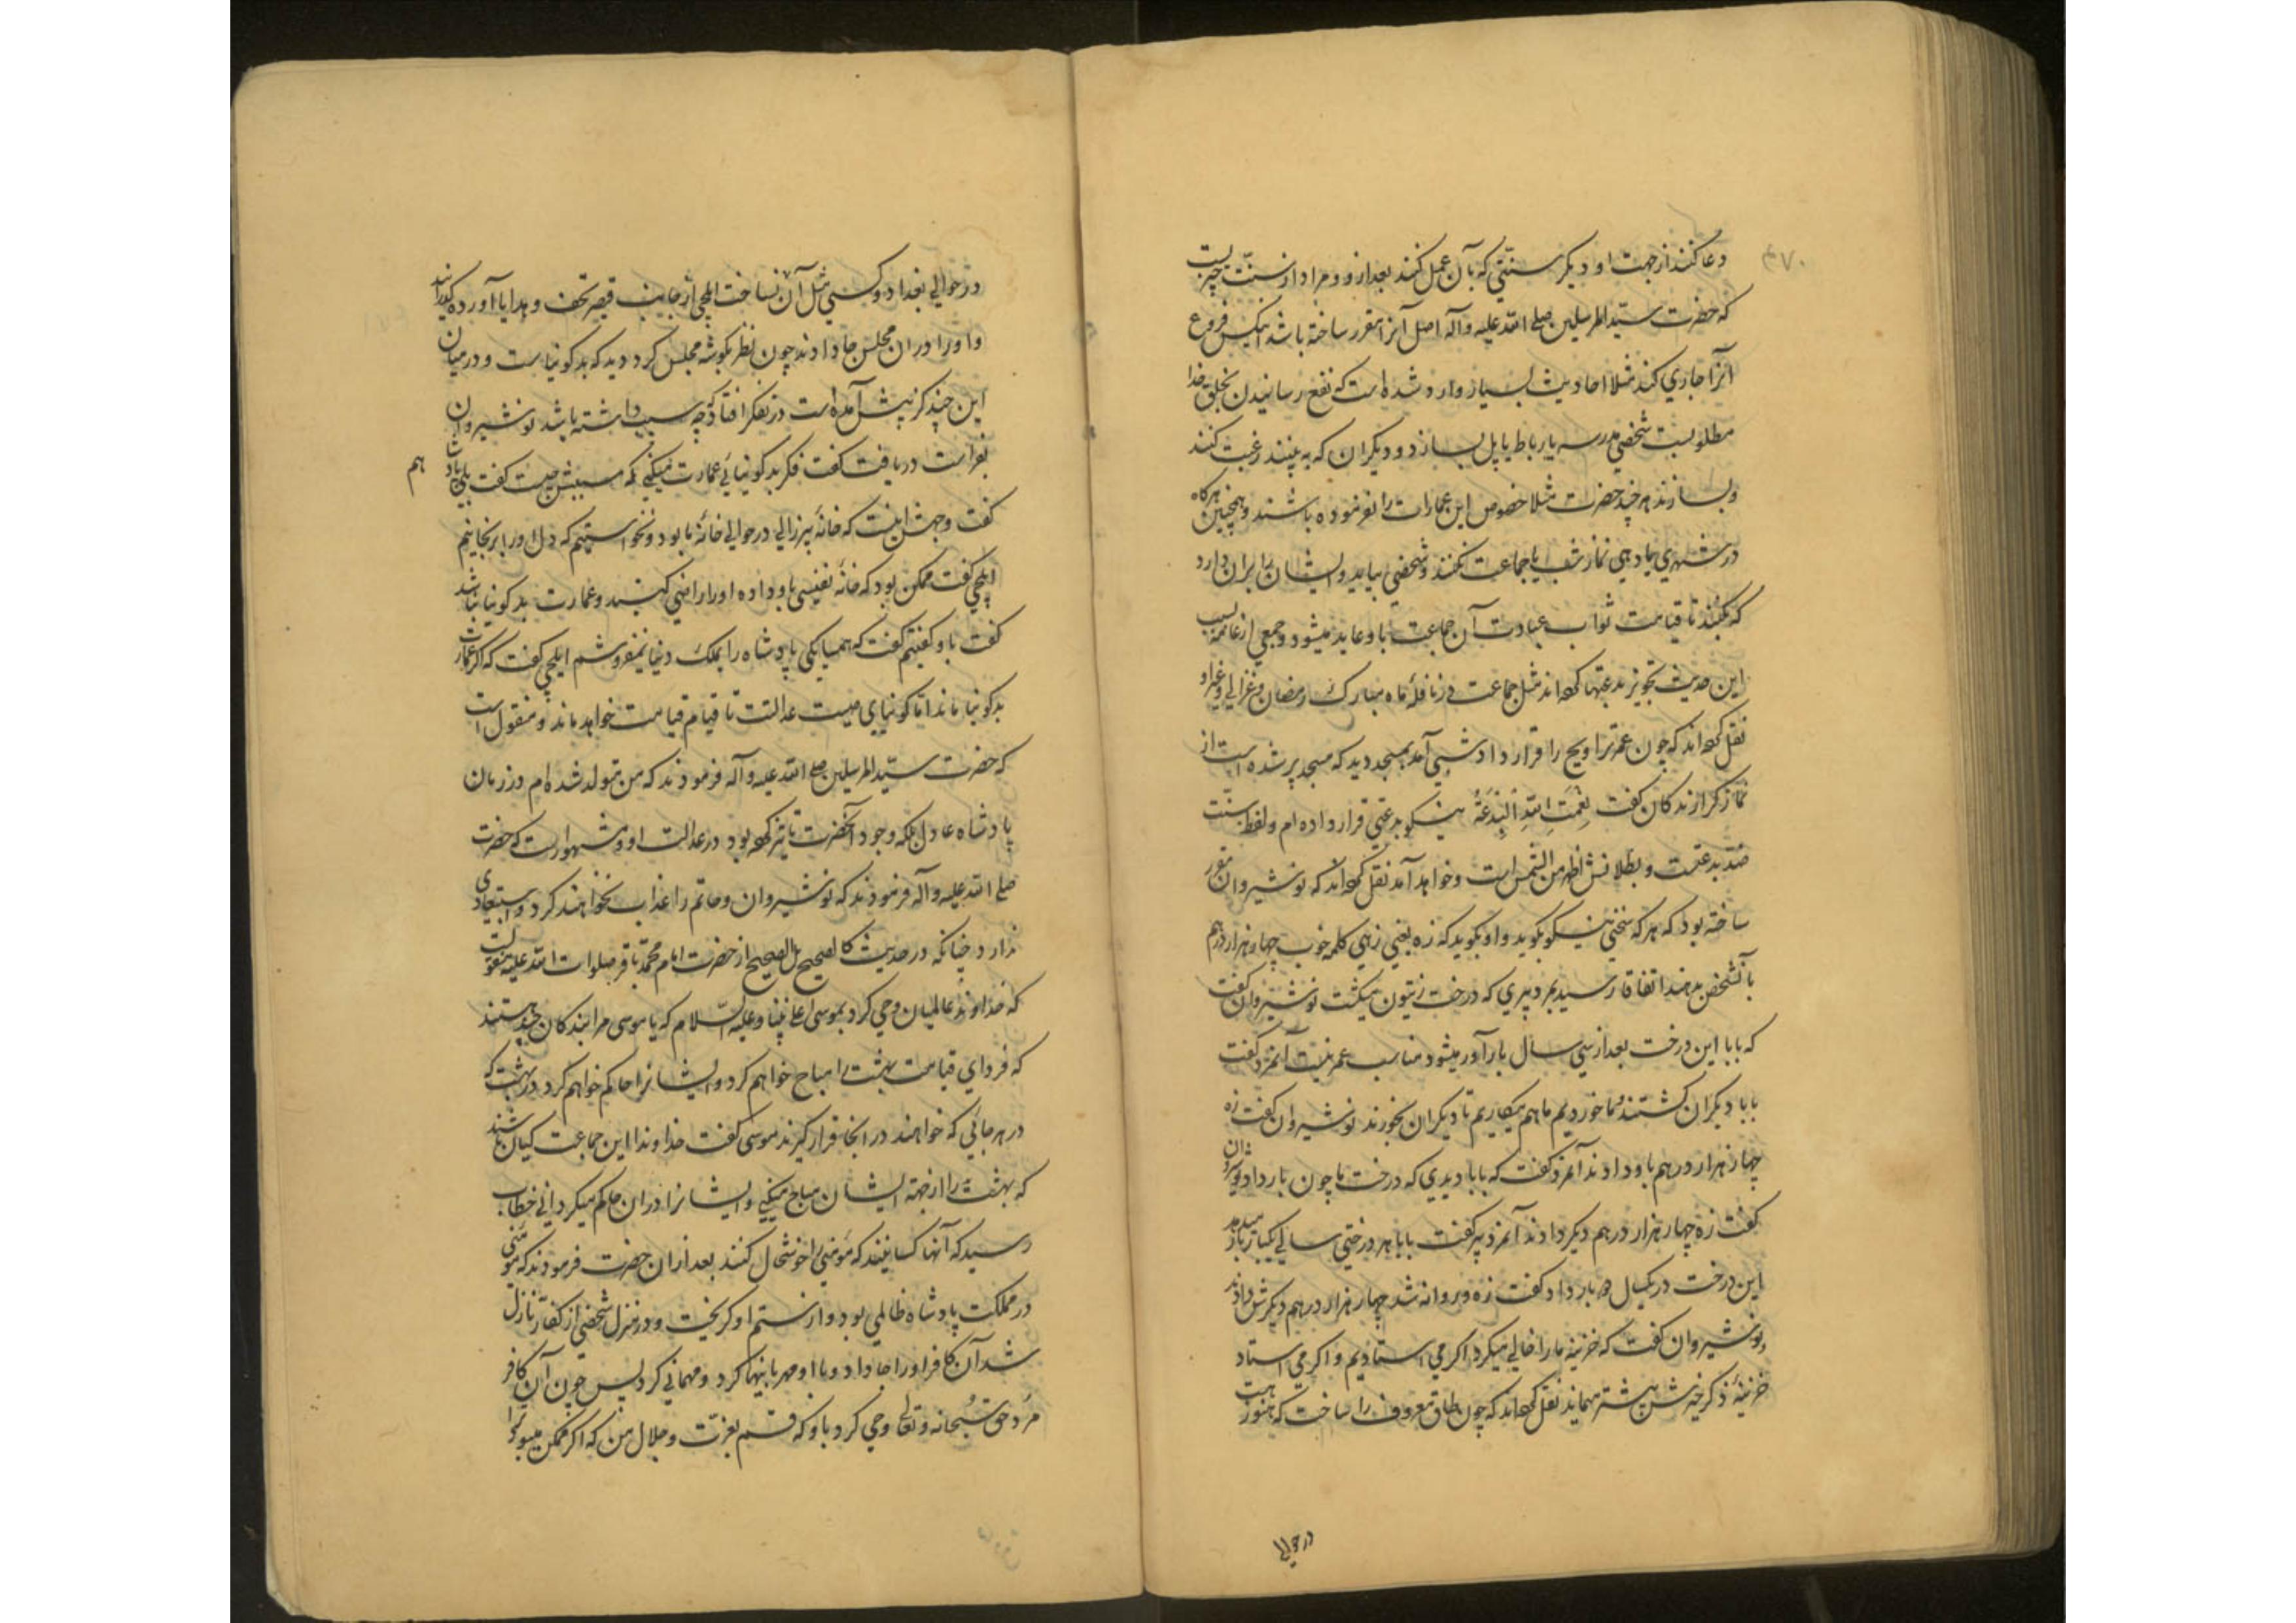 ۴۷۰
دعا کنند از جهت او و دیگر سنتی که بآن عمل کنند بعد ازو و مراد از سنت چیزیست
که حضرت سید المرسلین صلی الله علیه و آله اصل آنرا مقرر ساخته باشد اینکس فروع
آنرا جاری کند مثلا احادیث بسیار وارد شده است که نفع رسانیدن بخلق خدا
مطلوبست شخصی مدرسه یا رباط یا پل بسازد و دیگران که به بینند رغبت کنند
و بسازند هر چند حضرت مثلا خصوص این عمارات را نفرموده باشند و همچنین هرگاه
در شهری یا دهی نماز شب با جماعت نکنند و شخصی بیاید و ایشان را بران دارد
که بکنند تا قیامت ثواب عبادت آن جماعت باو عاید میشود و جمعی از عامه بسبب
این حدیث تجویز بدعتها کرده‌اند مثل جماعت در نافلهٔ ماه مبارک رمضان و غزالی و غیر او
نقل کرده‌اند که چون عمر تراویح را قرار داد شبی آمد بمسجد دید که مسجد پر شده است از
نماز گزارندگان گفت نِعْمَتِ البِدْعَةُ نیکو بدعتی قرار داده ام و لفظ سنت
ضد بدعتست و بطلانش اظهر من الشمس است و خواهد آمد نقل کرده‌اند که نوشیروان مقرر
ساخته بود که هر که سخنی نیکو بگوید و او بگوید که زه یعنی زهی کلمهٔ خوب چهار هزار درهم
بآنشخص بدهند اتفاقا رسید بمرد پیری که درخت زیتون میکشت نوشیروان گفت
که بابا این درخت بعد از سی سال بارآور میشود مناسب عمر نیست آنمرد گفت
بابا دیگران کشتند ما خوردیم ما هم میکاریم تا دیگران بخورند نوشیروان گفت زه
چهار هزار درهم باو دادند آنمرد گفت که بابا دیدی که درخت ما چون بار داد نوشیروان
گفت زه چهار هزار درهم دیگر دادند آنمرد پیر گفت بابا هر درختی سالی یکبار بار میدهد
این درخت در یکسال دو بار داد گفت زه و روانه شد چهار هزار درهم دیگرش دادند
و نوشیروان گفت که خزینه ما را خالی میکرد اگر می استادیم و اگر می استاد
خزینهٔ ذکر خیرش بیشتر میماند نقل کرده‌اند که چون طاق معروف را ساخت که هنوز هست
در حوالی
در حوالی بغداد و کسی مثل آن نساخت ایلچی از جانب قیصر تحف و هدایا آورده گذرانید
و او را در آن مجلس جا دادند چون نظر بگوشه مجلس کرد دید که بد گونیاست و در میان
این چند گز پیش آمده است در تفکر افتاد که چه سبب داشته باشد نوشیروان
بفراست دریافت گفت فکر بد گونیائی عمارت میکنی که سببش چیست گفت بلی پادشاها
هم
گفت وجهش اینست که خانهٔ پیرزالی در حوالی خانهٔ ما بود و نخواستیم که دل او را برنجانیم
ایلچی گفت ممکن بود که خانهٔ نفیسی باو داده او را راضی کنید و عمارت بد گونیا نباشد
گفت باو گفتیم گفت که همسایگی پادشاه را بملک دنیا نمیفروشم ایلچی گفت که اگر عمارت
بد گونیا ماند اما گونیای صیت عدالت تا قیام قیامت خواهد ماند و منقول است
که حضرت سید المرسلین صلی الله علیه و آله فرمودند که من متولد شده ام در زمان
پادشاه عادل بلکه وجود آنحضرت تاثیر کرده بود در عدالت او و مشهور است که حضرت
صلی الله علیه و آله فرمودند که نوشیروان و حاتم را عذاب نخواهند کرد و استبعادی
ندارد چنانکه در حدیث کالصحیح بل الصحیح از حضرت امام محمد باقر صلوات الله علیه منقولست
که خداوند عالمیان وحی کرد بموسی علی نبینا و علیه السلام که یا موسی مرا بندگان چند هستند
که فردای قیامت بهشت را مباح خواهم کرد و ایشانرا حاکم خواهم کرد در بهشت که
در هر جائی که خواهند در آنجا قرار گیرند موسی گفت خداوندا این جماعت کیان باشند
که بهشت را از جهت ایشان مباح میکنی و ایشانرا در آن حاکم میگردانی خطاب
رسید که آنها کسانیند که مؤمنی را خوشحال کنند بعد از آن حضرت فرمودند که مؤمنی
در مملکت پادشاه ظالمی بود و از ستم او گریخت و در منزل شخصی از کفار نازل
شد آن کافر او را جا داد و با او مهربانیها کرد و مهمانی کرد پس چون آن کافر
مرد حق سبحانه و تعالی وحی کرد باو که قسم بعزت و جلال من که اگر ممکن میبود ترا